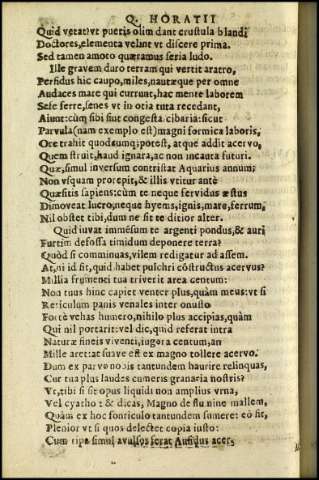 Q. HORATII
Quid vetat? vt pueris olim dant crustula blandi
Doctores, elementa velint vt discere prima.
Sed tamen amoto quæramus seria ludo.
Ille gravem duro terram qui vertit aratro,
Perfidus hic caupo, miles, nautæque per omne
Audaces mare qui currunt, hac mente laborem
Sese ferre, senes vt in otia tuta recedant,
Aiunt: cùm sibi sint congesta cibaria: sicut
Parvula (nam exemplo est) magni formica laboris,
Ore trahit quodcumq; potest, atque addit acervo,
Quem struit, haud ignara, ac non incauta futuri.
Quæ, simul inversum contristat Aquarius annum,
Non vsquam prorepit, & illis vtitur antè
Quæsitis sapiens: cùm te neque fervidus æstus
Dimoveat lucro, neque hyems, ignis, mare, ferrum,
Nil obstet tibi, dum ne sit te ditior alter.
Quid iuvat immēsum te argenti pondus, & auri
Furtim defossa timidum deponere terra?
Quòd si comminuas, vilem redigatur ad assem.
At, ni id sit, quid habet pulchri cōstructus acervus?
Millia frumenti tua triverit area centum:
Non tuus hinc capiet venter plus, quàm meus: vt si
Reticulum panis venales inter onusto
Fortè vehas humero, nihilo plus accipias, quàm
Qui nil portarit: vel dic, quid referat intra
Naturæ fineis viventi, iugera centum, an
Mille aret: at suave est ex magno tollere acervo.
Dum ex parvo nobis tantundem haurire relinquas,
Cur tua plus laudes cumeris granaria nostris?
Vt, tibi si sit opus liquidi non amplius vrna,
Vel cyatho: & dicas, Magno de flumine mallem,
Quàm ex hoc fonticulo tantundem sumere: eò fit,
Plenior vt si quos delectet copia iusto:
Cum ripa simul avulsos ferat Aufidus acer.